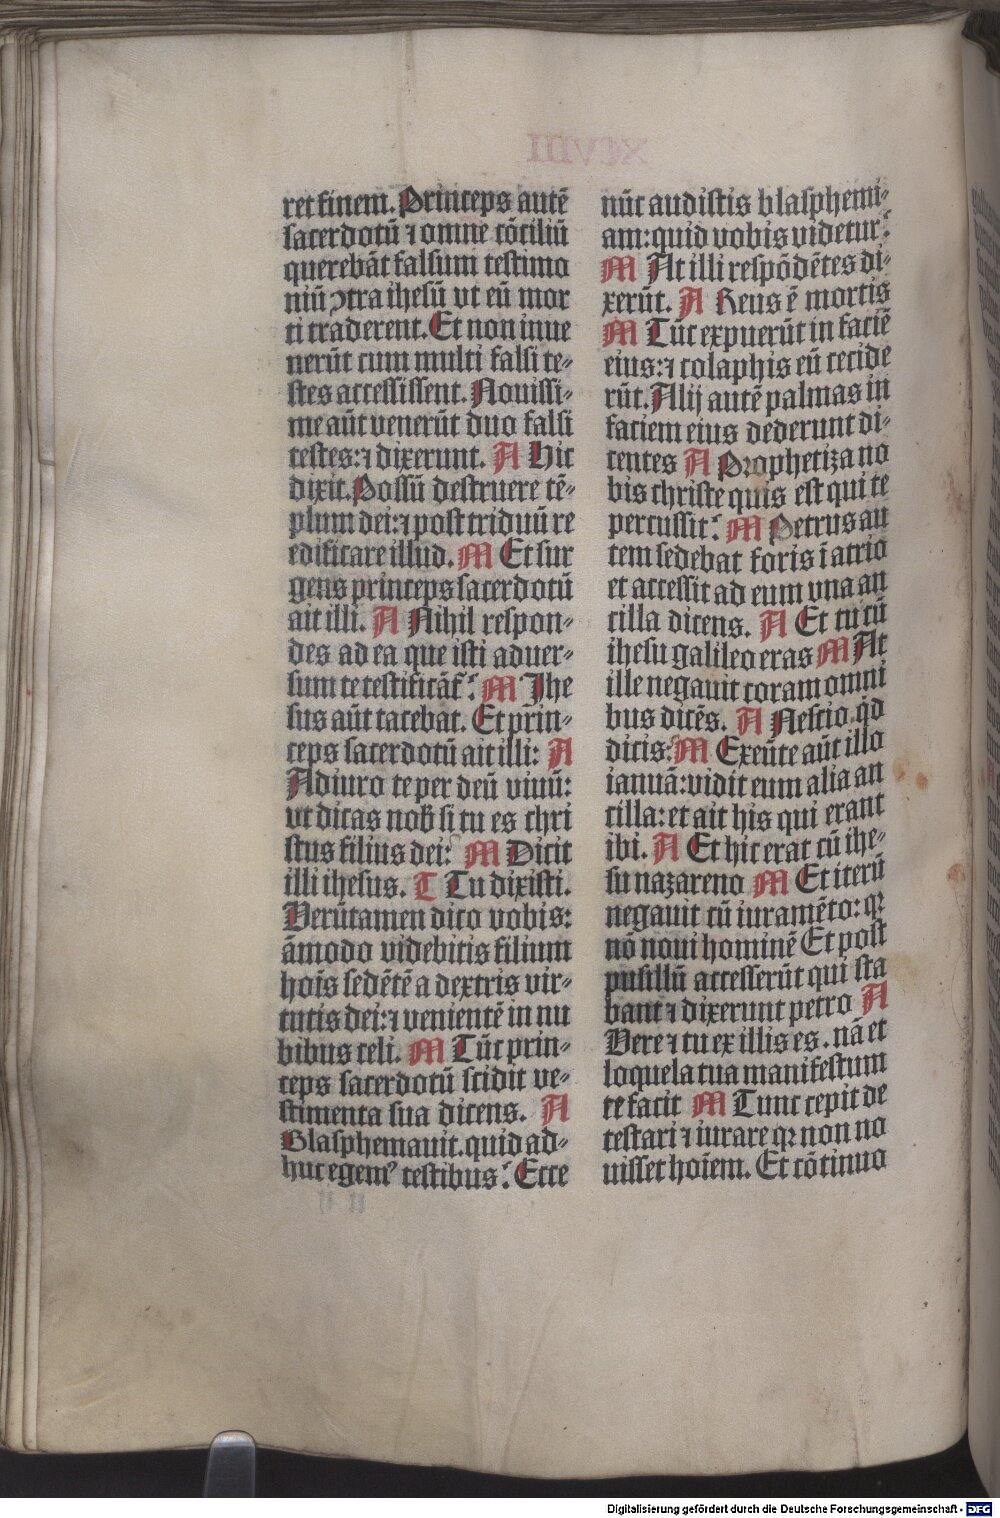 ret finem. Princeps autē
sacerdotū ⁊ omne cōciliū
querebāt falsum testimo
niū ꝯtra ihesū vt eū mor
ti traderent. Et non inue
nerūt cum multi falsi te⸗
stes accessissent. Nouissi⸗
me aūt venerūt duo falsi
testes: ⁊ dixerunt. A Hic
dixit. Possū destruere tē⸗
plum dei: ⁊ post triduū re
edificare illud. M Et sur
gens princeps sacerdotū
ait illi. A Nihil respon⸗
des ad ea que isti aduer⸗
sum te testificāt̄? M Ihe
sus aūt tacebat. Et prin⸗
ceps sacerdotū ait illi: A
Adiuro te per deū viuū:
vt dicas nob̄ si tu es chri
stus filius dei? M Dicit
illi ihesus. T Tu dixisti.
Verūtamen dico vobis:
āmodo videbitis filium
hoīs sedētē a dextris vir⸗
tutis dei: ⁊ venientē in nu
bibus celi. M Tūc prin⸗
ceps sacerdotū scidit ve⸗
stimenta sua dicens. A
Blasphemauit. quid ad⸗
huc egemꝰ testibus? Ecce
nūc audistis blasphemi⸗
am: quid vobis videtur?
M At illi respōdētes di⸗
xerūt. A Reus ē mortis
M Tūc expuerūt in faciē
eius: ⁊ colaphis eū cecide
rūt. Alij autē palmas in
faciem eius dederunt di⸗
centes A Prophetiza no
bis christe quis est qui te
percussit? M Petrus au
tem sedebat foris ī atrio
et accessit ad eum vna an
cilla dicens. A Et tu cū
ihesu galileo eras M At
ille negauit coram omni
bus dicēs. A Nescio qd̄
dicis: M Exeūte aūt illo
ianuā: vidit eum alia an
cilla: et ait his qui erant
ibi. A Et hic erat cū ihe⸗
su nazareno M Et iterū
negauit cū iuramēto: qꝛ
nō noui hominē Et post
pusillū accesserūt qui sta
bant ⁊ dixerunt petro A
Vere ⁊ tu ex illis es. nā et
loquela tua manifestum
te facit M Tunc cepit de
testari ⁊ iurare qꝛ non no
uisset hoīem. Et cōtinuo
Digitalisierung gefördert durch die Deutsche Forschungsgemeinschaft - DFG